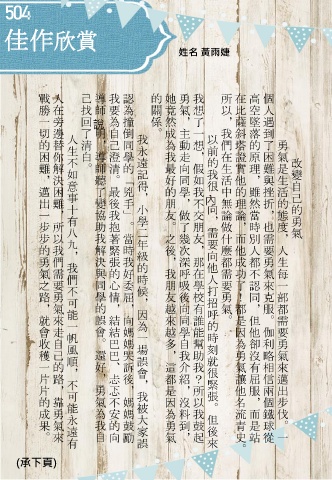 504
佳作欣賞
姓名 黃雨婕
改變自己的勇氣
勇氣是生活的態度，人生每一部都需要勇氣來邁出步伐。一
個人遇到了困難與挫折，也需要勇氣來克服。伽利略相信兩個鐵球從
高空墜落的原理，雖然當時別人都不認同，但他卻沒有屈服，而是站
在比薩斜塔證實他的理論，而他成功了！都是因為勇氣讓他名流青史。
所以，我們在生活中無論做什麼都需要勇氣。
以前的我很內向，需要向他人打招呼的時刻就很緊張。但後來
我想了一想，假如我不交朋友，那在學校有誰能幫助我？所以我鼓起
勇氣，主動走向同學，做了幾次深呼吸後向同學自我介紹，沒料到，
她竟然成為我最好的朋友。之後，我朋友越來越多，這都是因為勇氣
的關係。
我永遠記得，小學二年級的時候，因為一場誤會，我被大家誤
認為撞倒同學的「兇手」，當時我好委屈，向媽媽哭訴後，媽媽鼓勵
我要為自己澄清。最後我抱著緊張的心情，結結巴巴、忐忑不安的向
導師說明，導師聽了變協助我解決與同學的誤會。還好，勇氣為我自
己找回了清白。
人生不如意事十有八九，我們不可能一帆風順，不可能永遠有
人在旁邊替你解決困難，所以我們需要勇氣來走自己的路，靠勇氣來
戰勝一切的困難，邁出一步步的勇氣之路，就會收穫一片片的成果。
(承下頁)